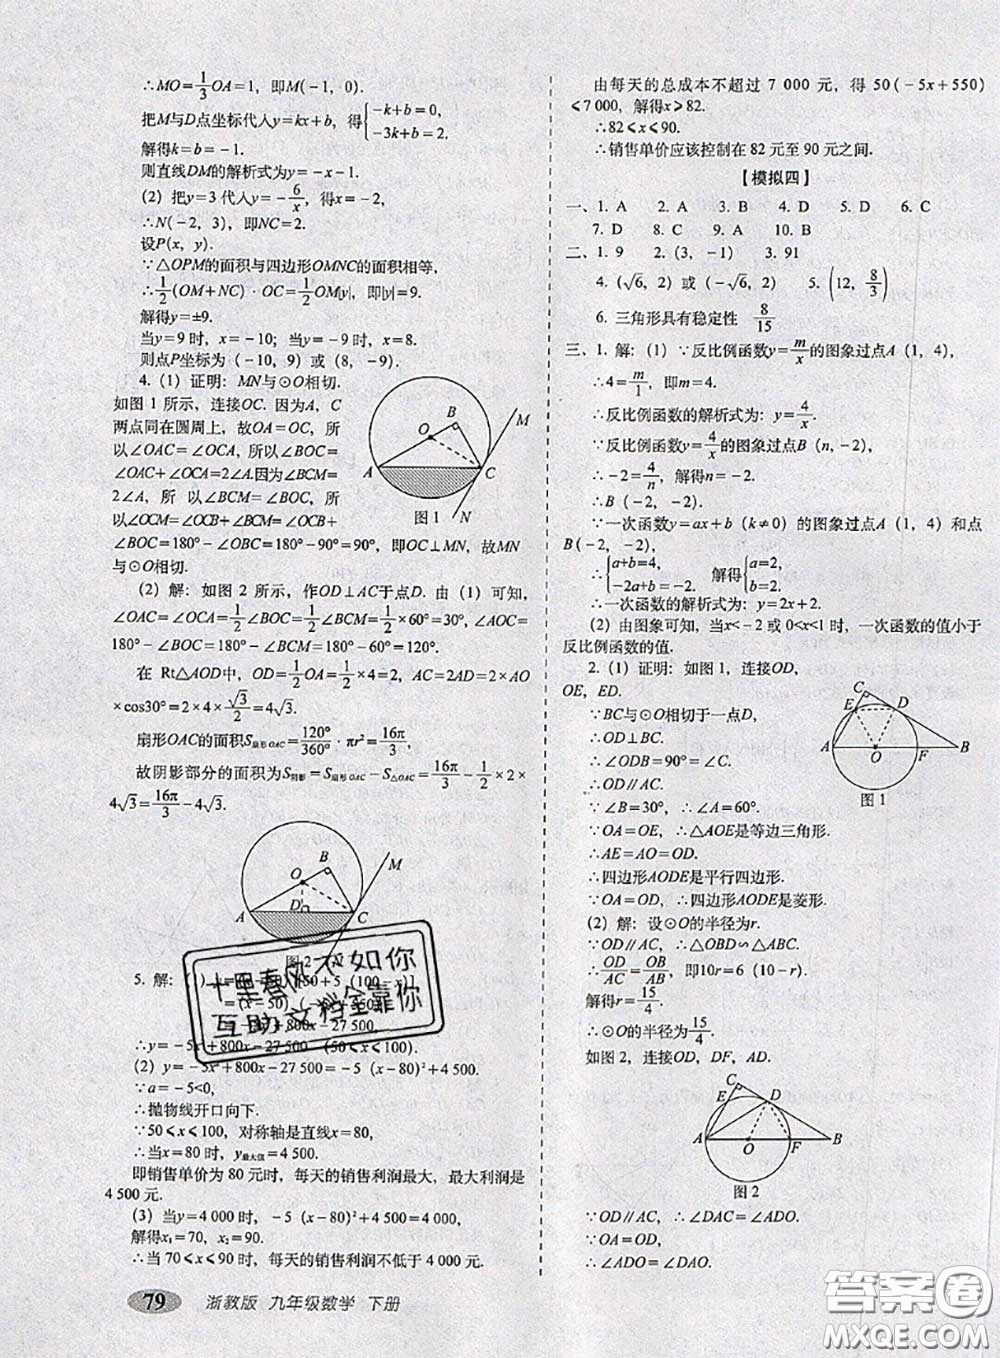 ∴MO=1/3OA=1，即M(-1，0).
把M与D点坐标代人y=kx+b，得{-k+b=0，-3k+b=2.
解得k=b=-1.
则直线DM的解析式为y=-x-1.
(2) 把y=3代人y=-6/x，得x=-2，
∴N(-2，3)，即NC=2.
设P(x，y).
∵△OPM的面积与四边形OMNC的面积相等，
∴1/2(OM+NC)·OC=1/2OM|y|，即|y|=9.
解得y=±9.
当y=9时，x=-10；当y=-9时，x=8.
则点P坐标为(-10，9)或(8，-9).
4. (1) 证明：MN与⊙O相切.
如图1所示，连接OC. 因为A，C
两点同在圆周上，故OA=OC，所
以∠OAC=∠OCA，所以∠BOC=
∠OAC+∠OCA=2∠A.因为∠BCM=
2∠A，所以∠BCM=∠BOC，所
以∠OCM=∠OCB+∠BCM=∠OCB+
∠BOC=180°-∠OBC=180°-90°=90°，即OC⊥MN，故MN
与⊙O相切.
A O B M C N
图1
(2) 解：如图2所示，作OD⊥AC于点D. 由(1)可知，
∠OAC=∠OCA=1/2∠BOC=1/2∠BCM=1/2×60°=30°，∠AOC=
180°-∠BOC=180°-∠BCM=180°-60°=120°.
在Rt△AOD中，OD=1/2OA=1/2×4=2，AC=2AD=2×AO
×cos30°=2×4×√3/2=4√3.
扇形OAC的面积S扇形OAC=120°/360°·πr²=16π/3，
故阴影部分的面积为S阴影=S扇形OAC-S△OAC=16π/3-1/2×2×
4√3=16π/3-4√3.
A O B M D C
图2
5. 解：
十里春风不如你
互助文档全靠你
∴y=-5x²+800x-27 500 (50≤x≤100).
(2) y=-5x²+800x-27 500=-5 (x-80)²+4 500.
∵a=-5<0，
∴抛物线开口向下.
∵50≤x≤100，对称轴是直线x=80，
∴当x=80时，y最大值=4 500.
即销售单价为80元时，每天的销售利润最大，最大利润是
4 500元.
(3) 当y=4 000时，-5 (x-80)²+4 500=4 000，
解得x₁=70，x₂=90.
∴当70≤x≤90时，每天的销售利润不低于4 000元.
79 浙教版 九年级数学 下册
由每天的总成本不超过7 000元，得50(-5x+550)
≤7 000，解得x≥82.
∴82≤x≤90.
∴销售单价应该控制在82元至90元之间.
【模拟四】
一、1. A 2. A 3. B 4. D 5. D 6. C
7. D 8. C 9. A 10. B
二、1. 9 2. (3，-1) 3. 91
4. (√6，2) 或 (-√6，2) 5. (12，8/3)
6. 三角形具有稳定性 8/15
三、1. 解：(1) ∵反比例函数y=m/x的图象过点A(1，4)，
∴4=m/1，即m=4.
∴反比例函数的解析式为：y=4/x.
∵反比例函数y=4/x的图象过点B(n，-2)，
∴-2=4/n，解得n=-2.
∴B(-2，-2).
∵一次函数y=ax+b (k≠0)的图象过点A(1，4)和点
B(-2，-2)，
∴{a+b=4，-2a+b=-2. 解得{a=2，b=2.
∴一次函数的解析式为：y=2x+2.
(2) 由图象可知，当x<-2或0<x<1时，一次函数的值小于
反比例函数的值.
2. (1) 证明：如图1，连接OD，
OE，ED.
∵BC与⊙O相切于一点D，
∴OD⊥BC.
∴∠ODB=90°=∠C.
∴OD∥AC.
∵∠B=30°，∴∠A=60°.
∵OA=OE，∴△AOE是等边三角形.
∴AE=AO=OD.
∴四边形AODE是平行四边形.
∵OA=OD，∴四边形AODE是菱形.
C E D A O F B
图1
(2) 解：设⊙O的半径为r.
∵OD∥AC，∴△OBD∽△ABC.
∴OD/AC=OB/AB，即10r=6(10-r).
解得r=15/4.
∴⊙O的半径为15/4.
如图2，连接OD，DF，AD.
C E D A O F B
图2
∵OD∥AC，∴∠DAC=∠ADO.
∵OA=OD，
∴∠ADO=∠DAO.
答案圈
MXQE.COM